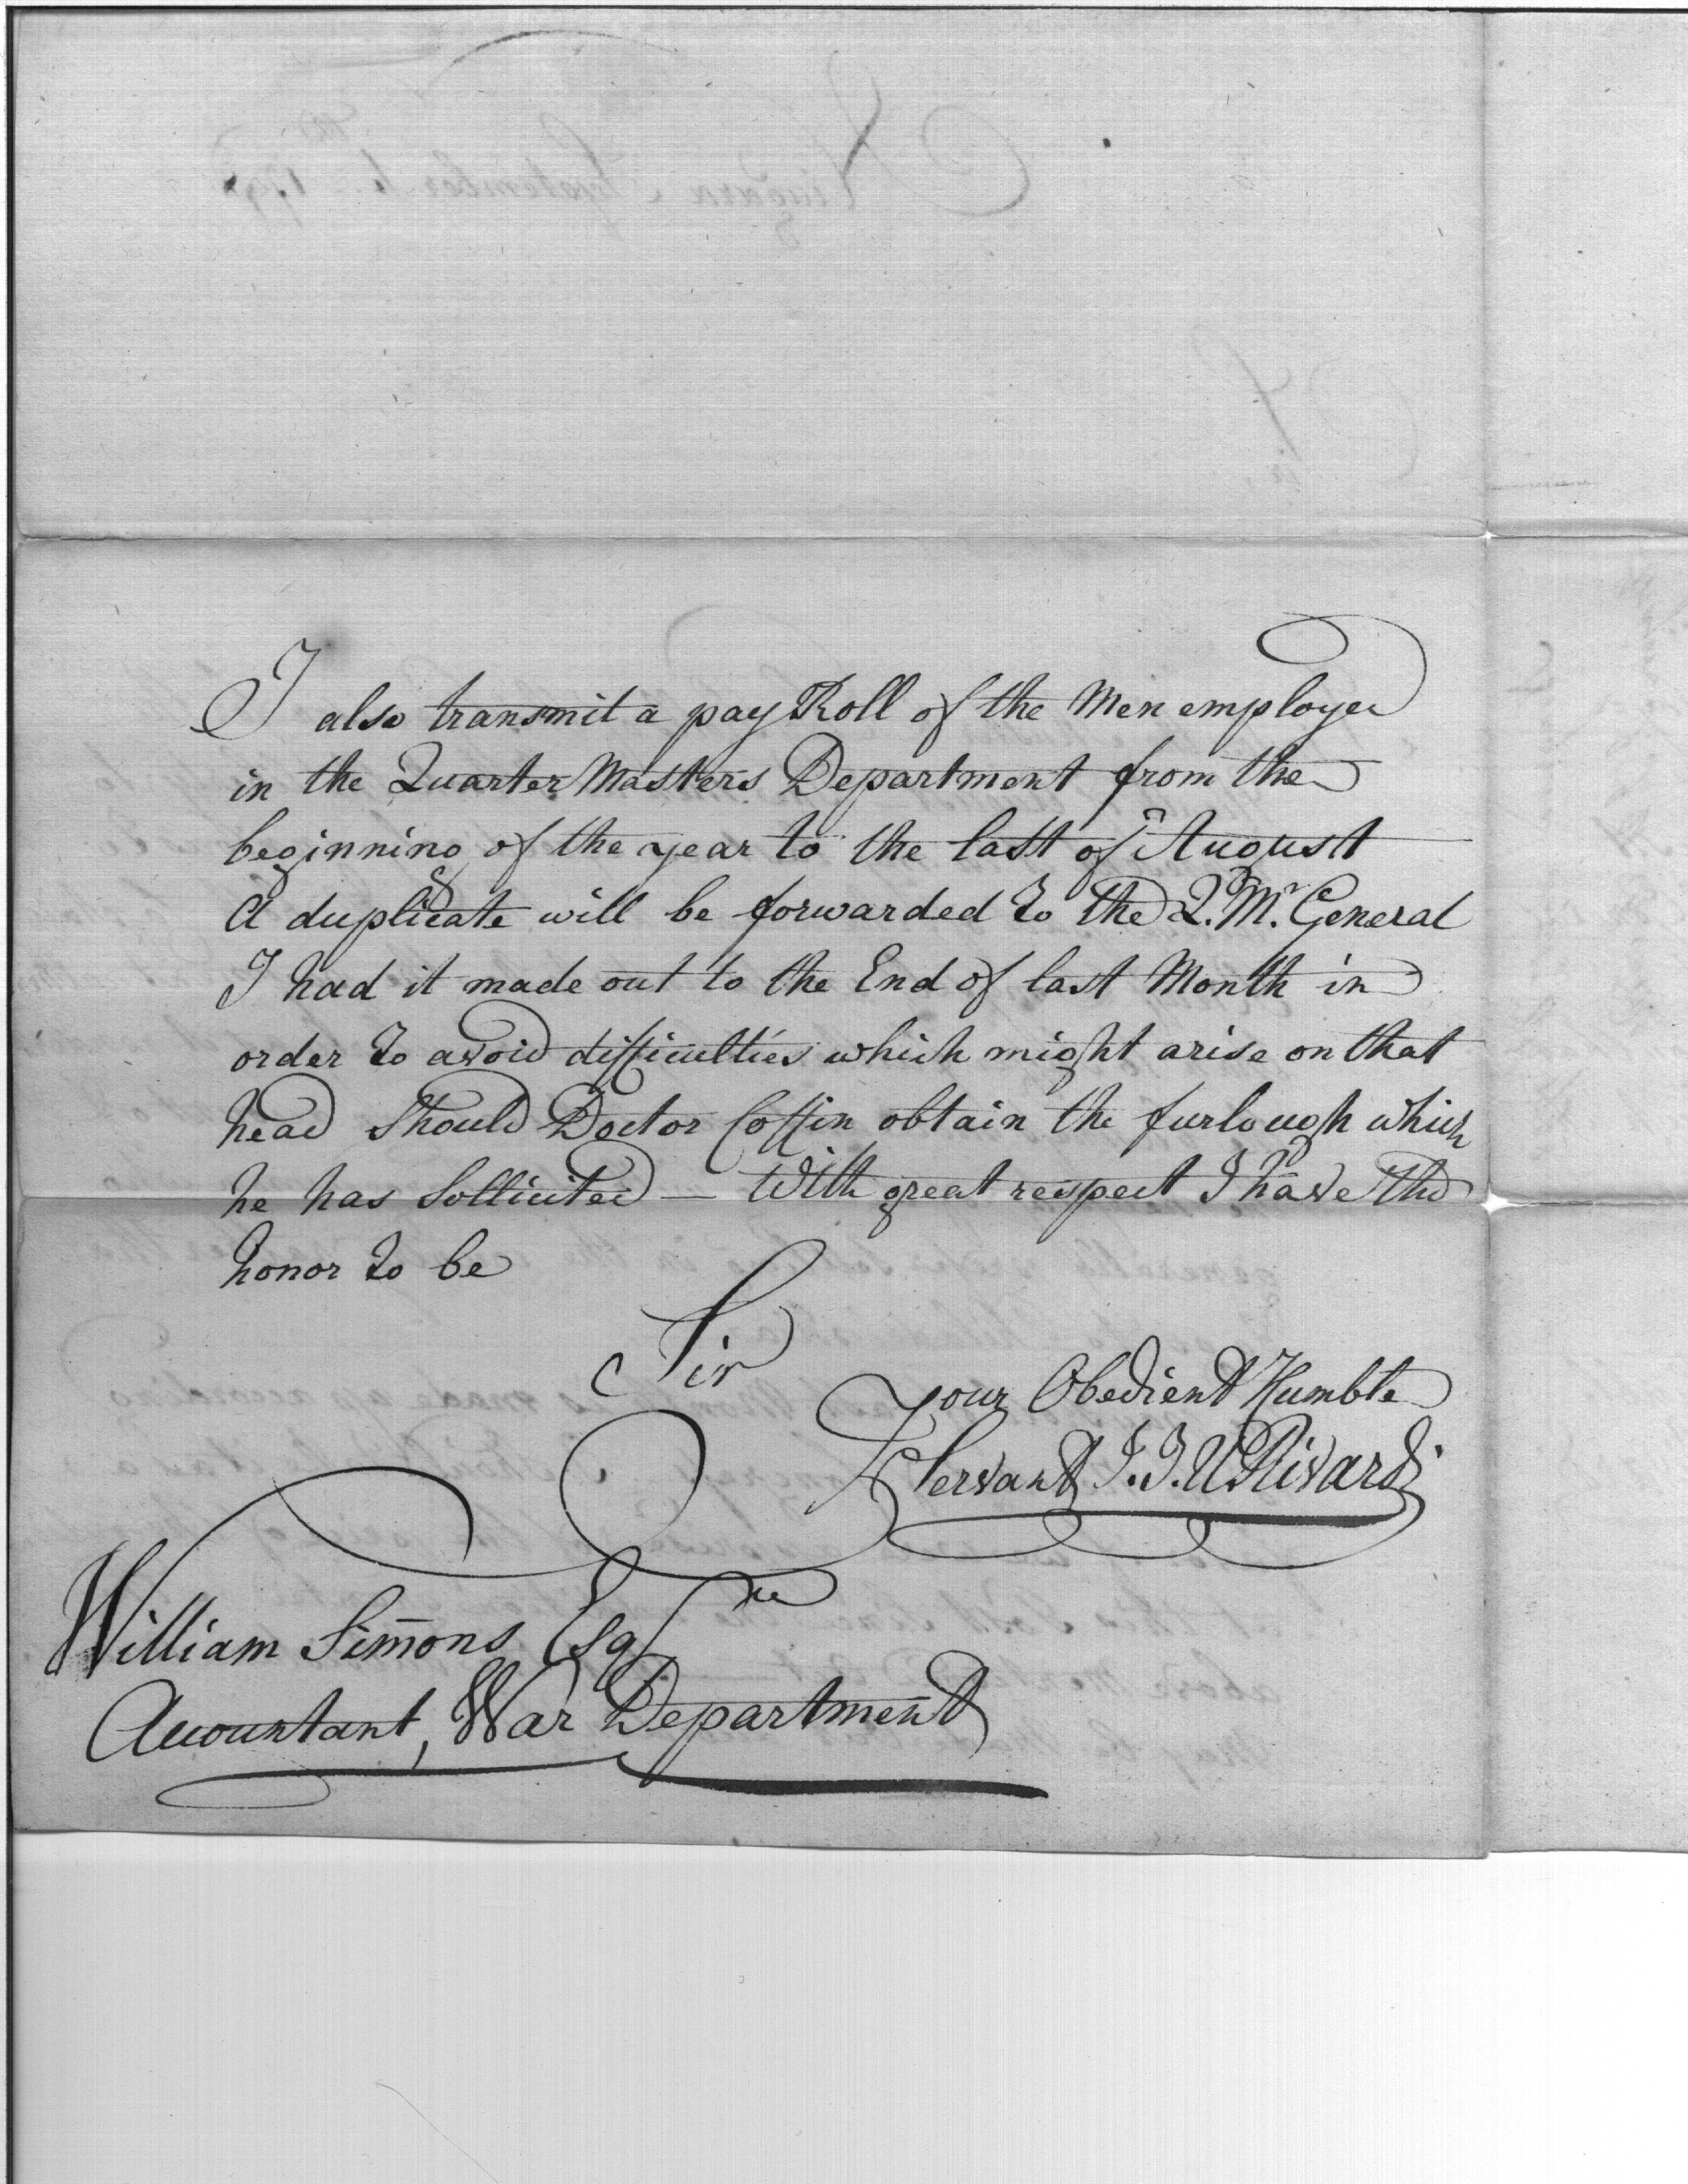 I also transmit a pay Roll of the Men employed
in the Quarter Masters Department from the
beginning of the year to the last of August
A duplicate will be forwarded to the Q. Mr. General
I had it made out to the End of last Month in
order to avoid difficulties which might arise on that
head Should Doctor Coffin obtain the furlough which
he has Sollicited — With great respect I have the
honor to be
Sir
your Obedient Humble
Servant J. J. U. Rivardi
William Sim̄ons Esqre
Accountant, War Department